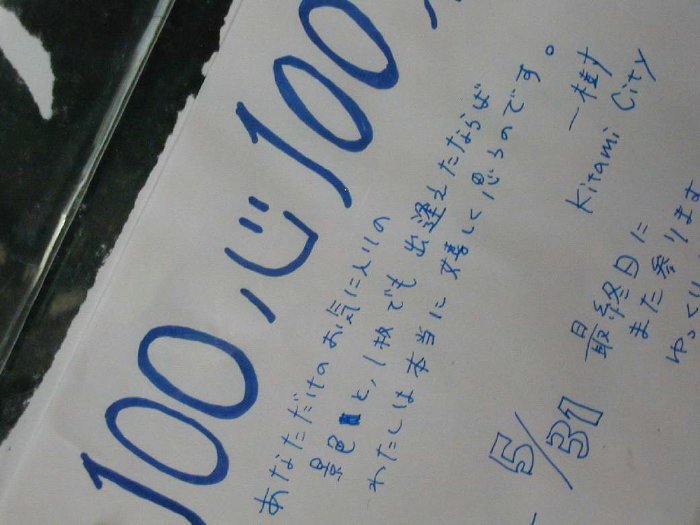 100心100
あなただけのお気に入りの
景色と、1枚でも出逢えたならば
わたしは本当に嬉しく思うのです。
一樹
Kitami City
5/31
最終日に
また参ります
ゆっくり